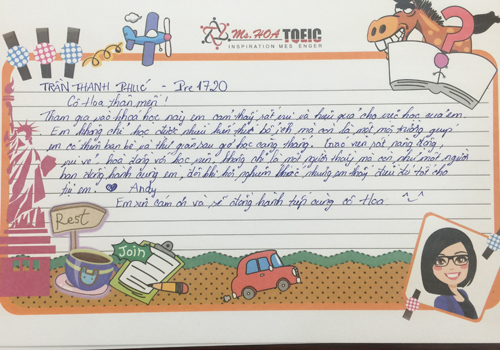 Ms. HOA TOEIC
INSPIRATION MESSENGER
TRẦN THANH PHÚC - Pre 1720
Cô Hoa thân mến!
Tham gia vào khóa học này em cảm thấy rất vui và hiệu quả cho việc học của em.
Em không chỉ học được nhiều kiến thức bổ ích mà còn là một môi trường giúp
em có thêm bạn bè và thư giãn sau giờ học căng thẳng. Giáo viên rất năng động,
vui vẻ, hòa đồng với học viên, không chỉ là một người thầy mà còn như một người
bạn đồng hành cùng em, đôi khi hơi nghiêm khắc nhưng em thấy điều đó tốt cho
tụi em! Andy
Em xin cảm ơn và sẽ đồng hành tiếp cùng cô Hoa ^^
Rest
Join